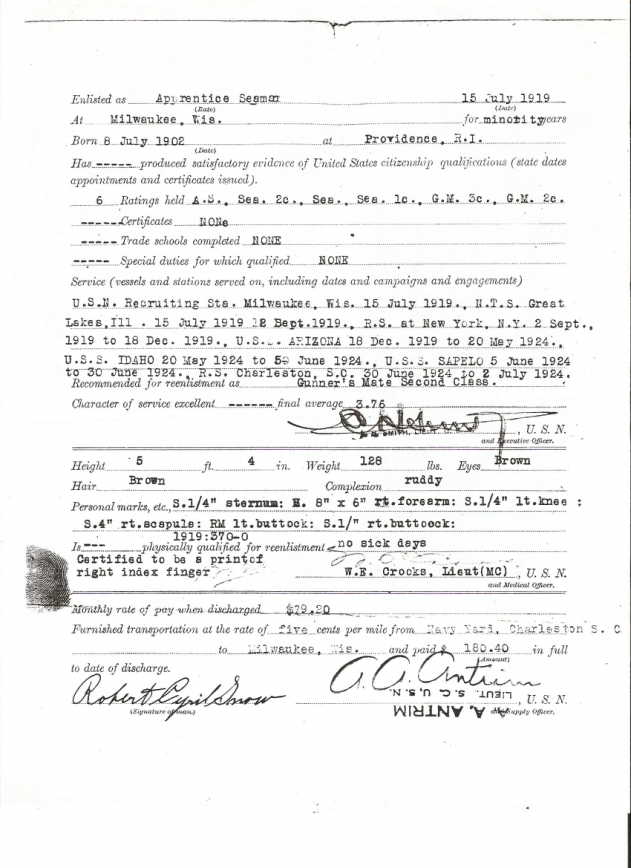 Enlisted as Apprentice Seaman 15 July 1919
(Rate) (Date)
At Milwaukee, Wis. for minority years
Born 8 July 1902 at Providence, R.I.
(Date)
Has ----- produced satisfactory evidence of United States citizenship qualifications (state dates
appointments and certificates issued).
6 Ratings held A.S., Sea. 2c., Sea., Sea. 1c., G.M. 3c., G.M. 2c.
-----Certificates NONe
----- Trade schools completed NONE
----- Special duties for which qualified NONE
Service (vessels and stations served on, including dates and campaigns and engagements)
U.S.N. Recruiting Sta. Milwaukee, Wis. 15 July 1919., N.T.S. Great
Lakes,Ill . 15 July 1919 12 Sept.1919., R.S. at New York, N.Y. 2 Sept.,
1919 to 18 Dec. 1919., U.S.S. ARIZONA 18 Dec. 1919 to 20 May 1924.,
U.S.S. IDAHO 20 May 1924 to 5 June 1924., U.S.S. SAPELO 5 June 1924
to 30 June 1924., R.S. Charleston, S.C. 30 June 1924 to 2 July 1924.
Recommended for reenlistment as Gunner's Mate Second Class.
Character of service excellent ------ final average 3.76
, U. S. N.
and Executive Officer.
Height 5 ft. 4 in. Weight 128 lbs. Eyes Brown
Hair Brown Complexion ruddy
Personal marks, etc., S.1/4" sternum: M. 8" x 6" rt.forearm: S.1/4" lt.knee :
S.4" rt.scapula: RM lt.buttock: S.1/" rt.buttock:
1919:370-0
Is --- physically qualified for reenlistment no sick days
Certified to be a print of
right index finger W.E. Crooks, Lieut(MC) , U. S. N.
and Medical Officer.
Monthly rate of pay when discharged $79.20
Furnished transportation at the rate of five cents per mile from Navy Yard, Charleston S. C
to Milwaukee, Wis. and paid $ 180.40 in full
(Amount)
to date of discharge.
A. A. Antrim
Robert Cyril Snow LIEUT. S.C. U.S.N. , U. S. N.
(Signature of man.) A. A. ANTRIM Supply Officer.